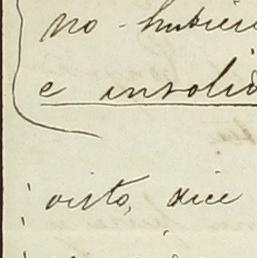 no hubier
e insolid
visto, dice